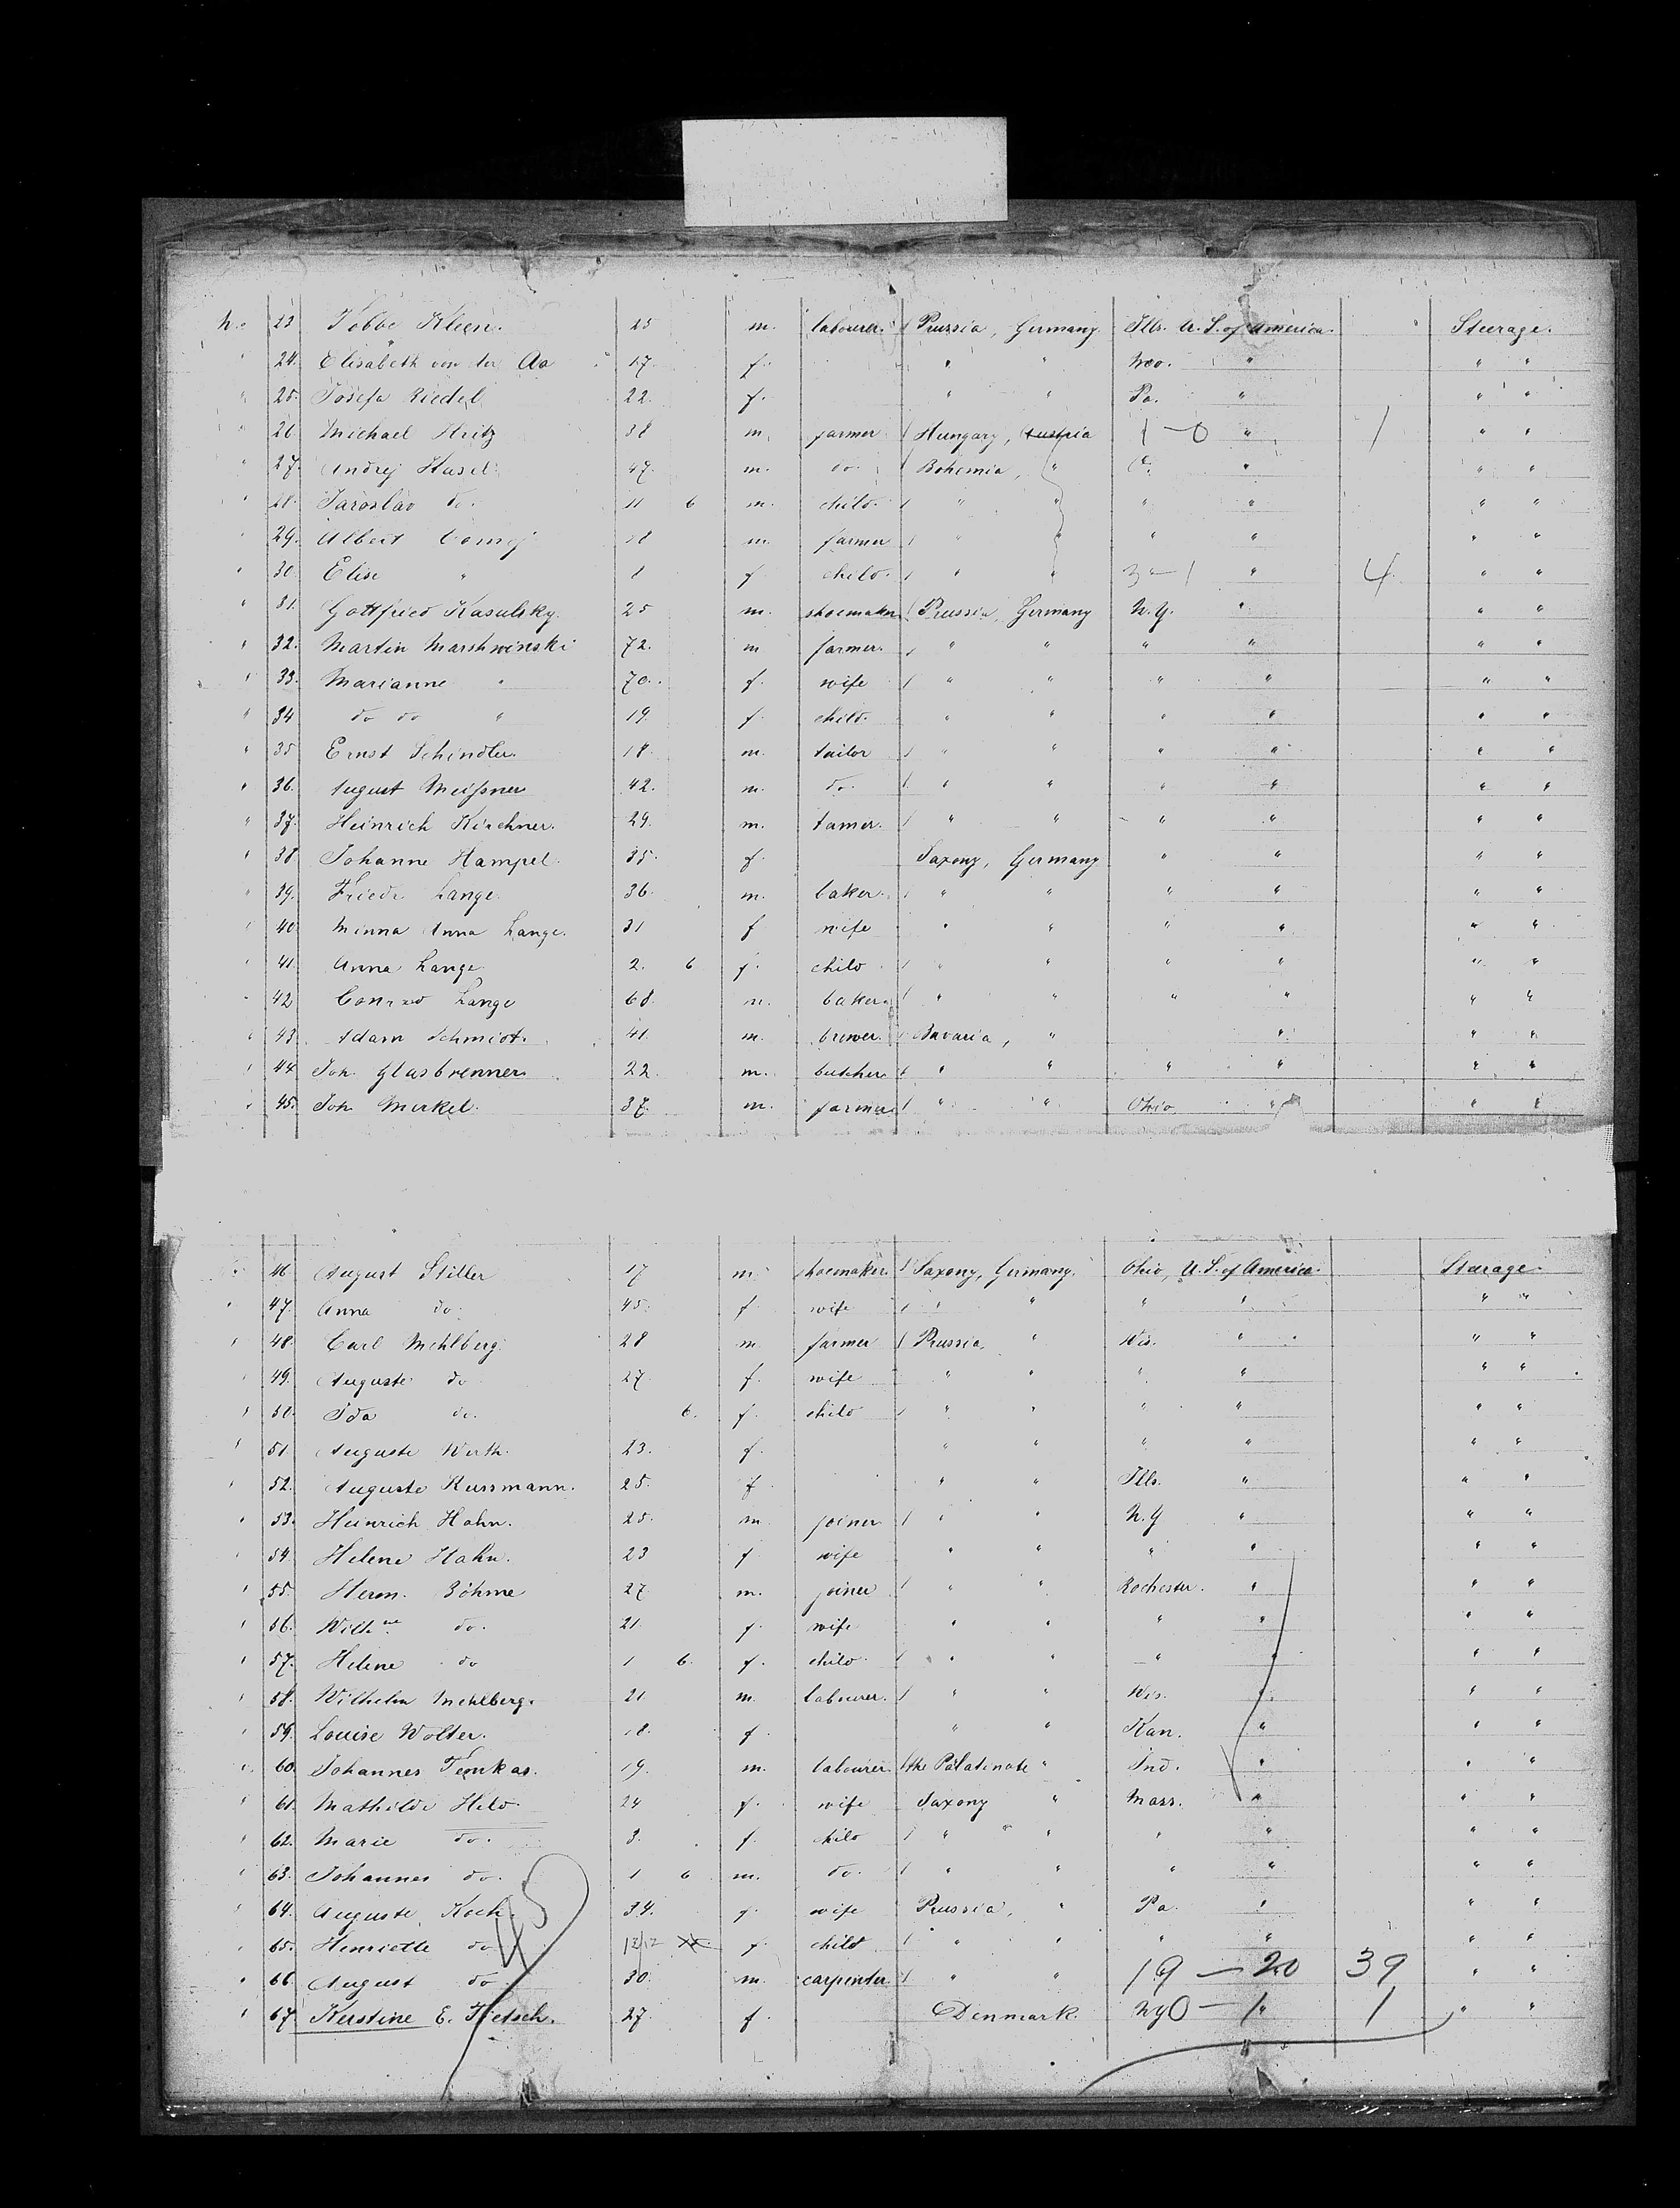 No. 23 Tobbe Kleen. 25 m. labourer. Prussia, Germany. Ills. U.S. of America. Steerage.
" 24. Elisabeth von der Aa 17. f. " " Mo. " " "
" 25. Josefa Riedel 22. f. " " Pa. " " "
" 26 Michael Hritz 38 m. farmer Hungary, Austria 1-0 " 1 " "
" 27. Andrej Hasel 47. m. do. Bohemia, " O. " " "
" 28. Jaroslav do. 11 6 m. child. " " " " " "
" 29. Albert 18 m. farmer " " " " " "
" 30. Elise " 1 f child. " " 3-1 " 4 " "
" 31. Gottfried Kasulsky. 25 m. shoemaker Prussia, Germany N.Y. " " "
" 32. Martin Marshwinski 72. m farmer. " " " " " "
" 33. Marianne " 70. f. wife " " " " " "
" 34 do do " 19. f. child. " " " " " "
" 35 Ernst Schindler. 18 m. tailor " " " " " "
" 36. August Meißner 42. m. do. " " " " " "
" 37. Heinrich Kirchner. 29. m. tanner. " " " " " "
" 38 Johanne Hampel. 35. f. Saxony, Germany " " " "
" 39. Friedr. Lange 36. m. baker. " " " " " "
" 40. Minna Anna Lange. 31 f wife " " " " " "
" 41. Anna Lange 2. 6 f. child " " " " " "
" 42 Conrad Lange 68. m. baker. " " " " " "
" 43. Adam Schmidt. 41. m. brewer. Bavaria, " " " "
" 44. Joh. Glasbrenner 22. m. butcher " " " " " "
" 45. Joh. Merkel. 37. m. farmer " " Ohio " " "
" 46. August Stiller 17 m. shoemaker Saxony, Germany. Ohio, U.S. of America. Steerage.
" 47. Anna do. 45. f. wife " " " " " "
" 48. Carl Mehlberg. 28 m. farmer Prussia, " Wis. " " "
" 49. Auguste do 27. f. wife " " " " " "
" 50. Ida do. 6. f. child " " " " " "
" 51. Auguste Wirth. 23. f. " " " " " "
" 52. Auguste Russmann. 25. f. " " Ills. " " "
" 53. Heinrich Hahn. 25. m. joiner " " N.Y " " "
" 54. Helene Hahn. 23 f wife " " " " " "
" 55. Herm. Böhme 27. m. joiner " " Rochester. " " "
" 56. Wilhne. do. 21. f. wife " " " " " "
" 57. Helene do 1 6. f. child " " " " " "
" 58. Wilhelm Mehlberg. 21 m. labourer. " " Wis. " " "
" 59. Louise Wolter. 18. f " " Kan. " " "
" 60. Johannes Temkas. 19. m. labourer the Palatinate " Ind. " " "
" 61. Mathilde Held. 24 f. wife Saxony " Mass. " " "
" 62. Marie do. 3. f. child " " " " " "
" 63. Johannes do. 1 6 m. do. " " " " " "
" 64. Auguste Koch. 34. f. wife Prussia, " Pa. " " "
" 65. Henriette do 12/12 f. child " " " " " "
" 66. August do 30. m. carpenter " " 19-20 39 " "
" 67 Kerstine E. Tietsch. 27. f Denmark. NY 0-1 " 1 " "
45